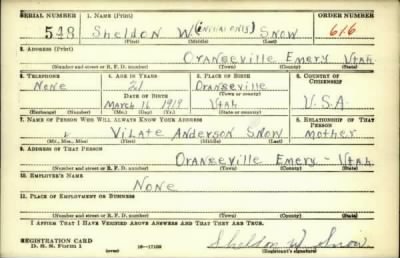 SERIAL NUMBER 1. NAME (Print) ORDER NUMBER
528 Sheldon W (initial only) Snow 616
(First) (Middle) (Last)
2. ADDRESS (Print)
Orangeville Emery Utah
(Number and street or R. F. D. number) (Town) (County) (State)
3. TELEPHONE 4. AGE IN YEARS 5. PLACE OF BIRTH 6. COUNTRY OF CITIZENSHIP
None 21 Orangeville
DATE OF BIRTH (Town or county)
March 16 1919 Utah U.S.A.
(Exchange) (Number) (Mo.) (Day) (Yr.) (State or country)
7. NAME OF PERSON WHO WILL ALWAYS KNOW YOUR ADDRESS 8. RELATIONSHIP OF THAT PERSON
Vilate Anderson Snow Mother
(Mr., Mrs., Miss) (First) (Middle) (Last)
9. ADDRESS OF THAT PERSON
Orangeville Emery - Utah
(Number and street or R. F. D. number) (Town) (County) (State)
10. EMPLOYER'S NAME
None
11. PLACE OF EMPLOYMENT OR BUSINESS
(Number and street or R. F. D. number) (Town) (County) (State)
I AFFIRM THAT I HAVE VERIFIED ABOVE ANSWERS AND THAT THEY ARE TRUE.
REGISTRATION CARD Sheldon W. Snow
D. S. S. Form 1 (over) (Registrant's signature)